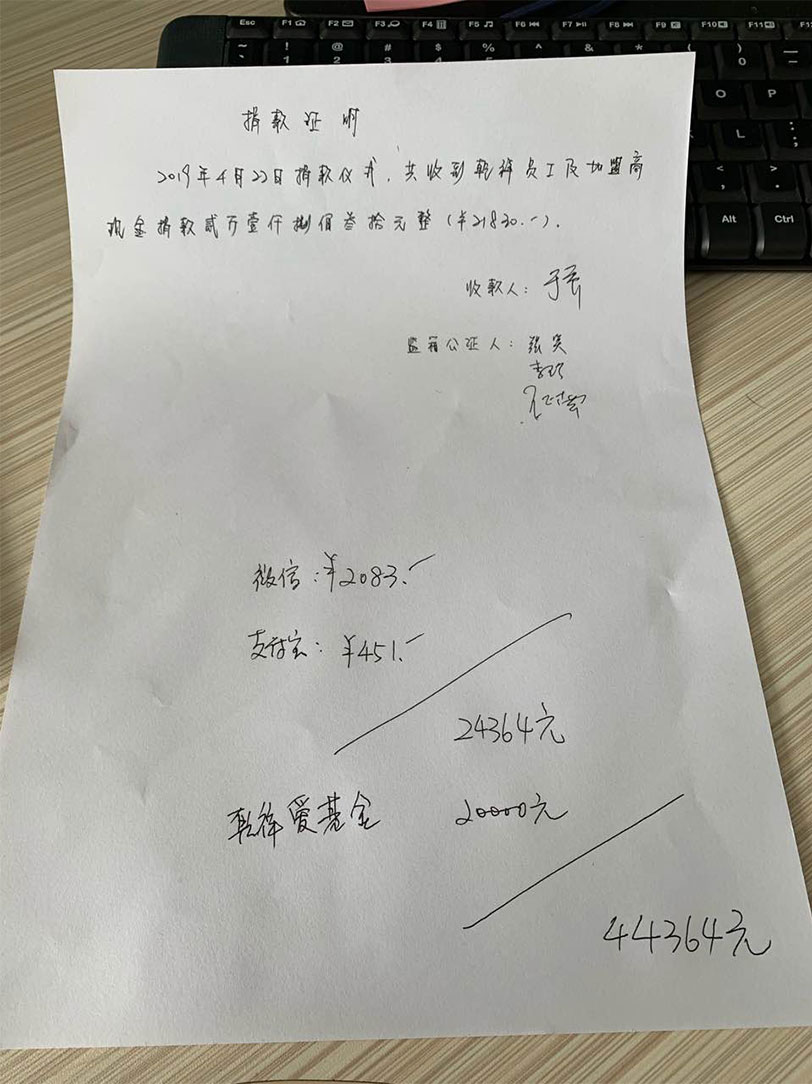 捐款证明
2019年4月22日捐款仪式,共收到乾祥员工及加盟商
现金捐款贰万壹仟捌佰叁拾元整(¥21830.-).
收款人:
监箱公证人:张笑
微信:¥2083.-
支付宝:¥451.-
24364元
乾祥爱基金 20000元
44364元
Esc F1 F2 F3 F4 F5 F6 F7 F8 F9 F10 F11
~ ! @ # $ % ^ & * ( )
1 2 3 4 0
O P
L :
;
< >
, .
Alt Ctrl